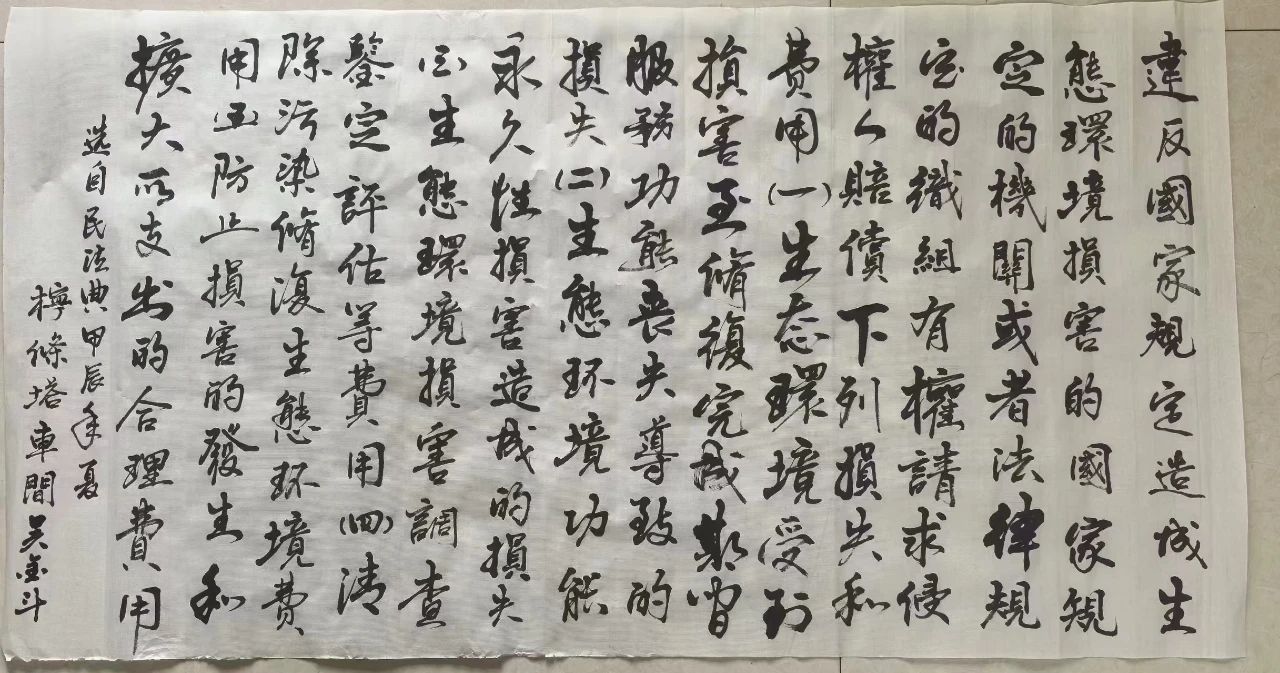 違反國家規定造成生
態環境損害的國家規
定的機關或者法律規
定的織組有權請求侵
權人賠償下列損失和
費用(一)生态環境受到
損害至脩復完成期間
服務功能喪失導致的
損失(二)生態环境功能
永久性損害造成的損失
(三)生態環境損害調查
鑒定評估等費用(四)清
除污染脩復生態环境費
用(五)防止損害的發生和
擴大所支出的合理費用
选自民法典甲辰年夏
檸條塔車間吴金斗